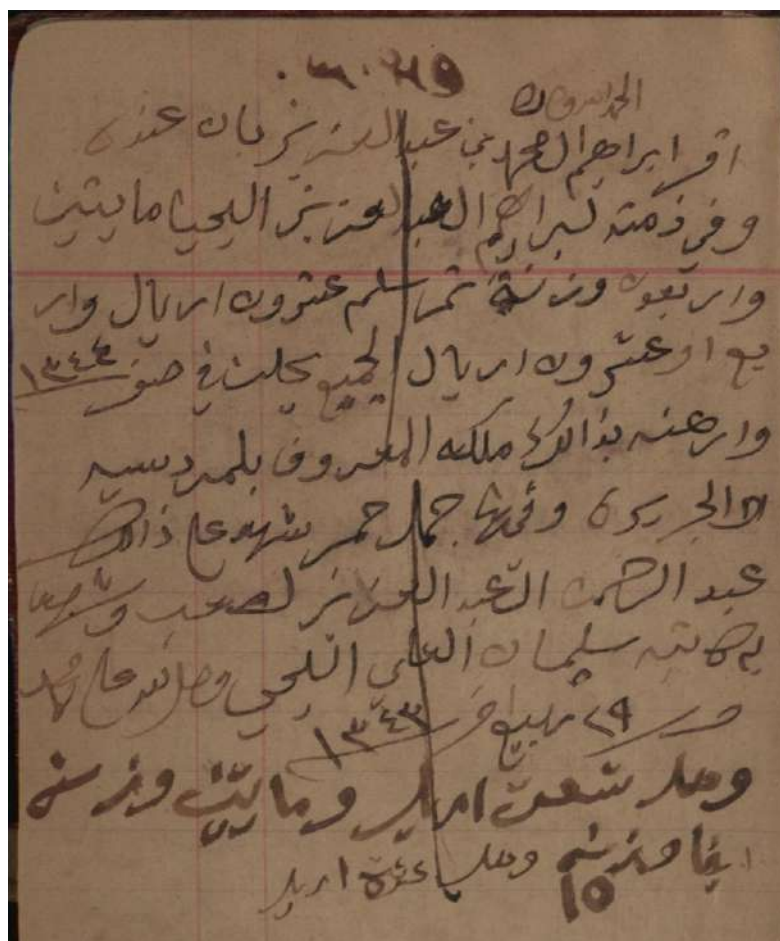 الحمد لله وحده
اقر ابراهيم المحمد بن عبد العزيز بان عنده
وفي ذمته لبراهيم العبد العزيز اليحيا مايتين
واربعون وزنة تمر سلم عشرون اريال وار
بع او عشرون اريال الجميع يحلن في صفر ١٣٤٤
وارهنه بذالك ملكه المعروف بلمردسيه
الجريده وفيها جمل حمر شهد على ذالك
عبد الرحمن العبد العزيز لصعب وشهد
به كاتبه سليمان العلي اليحيى وصل الله على محمد
٢٩ ربيع اخر ١٣٤٣
وصل تسعت اريل ومايتين وزنه
ايضا وزنه ١٥ وصل عشرة اريل